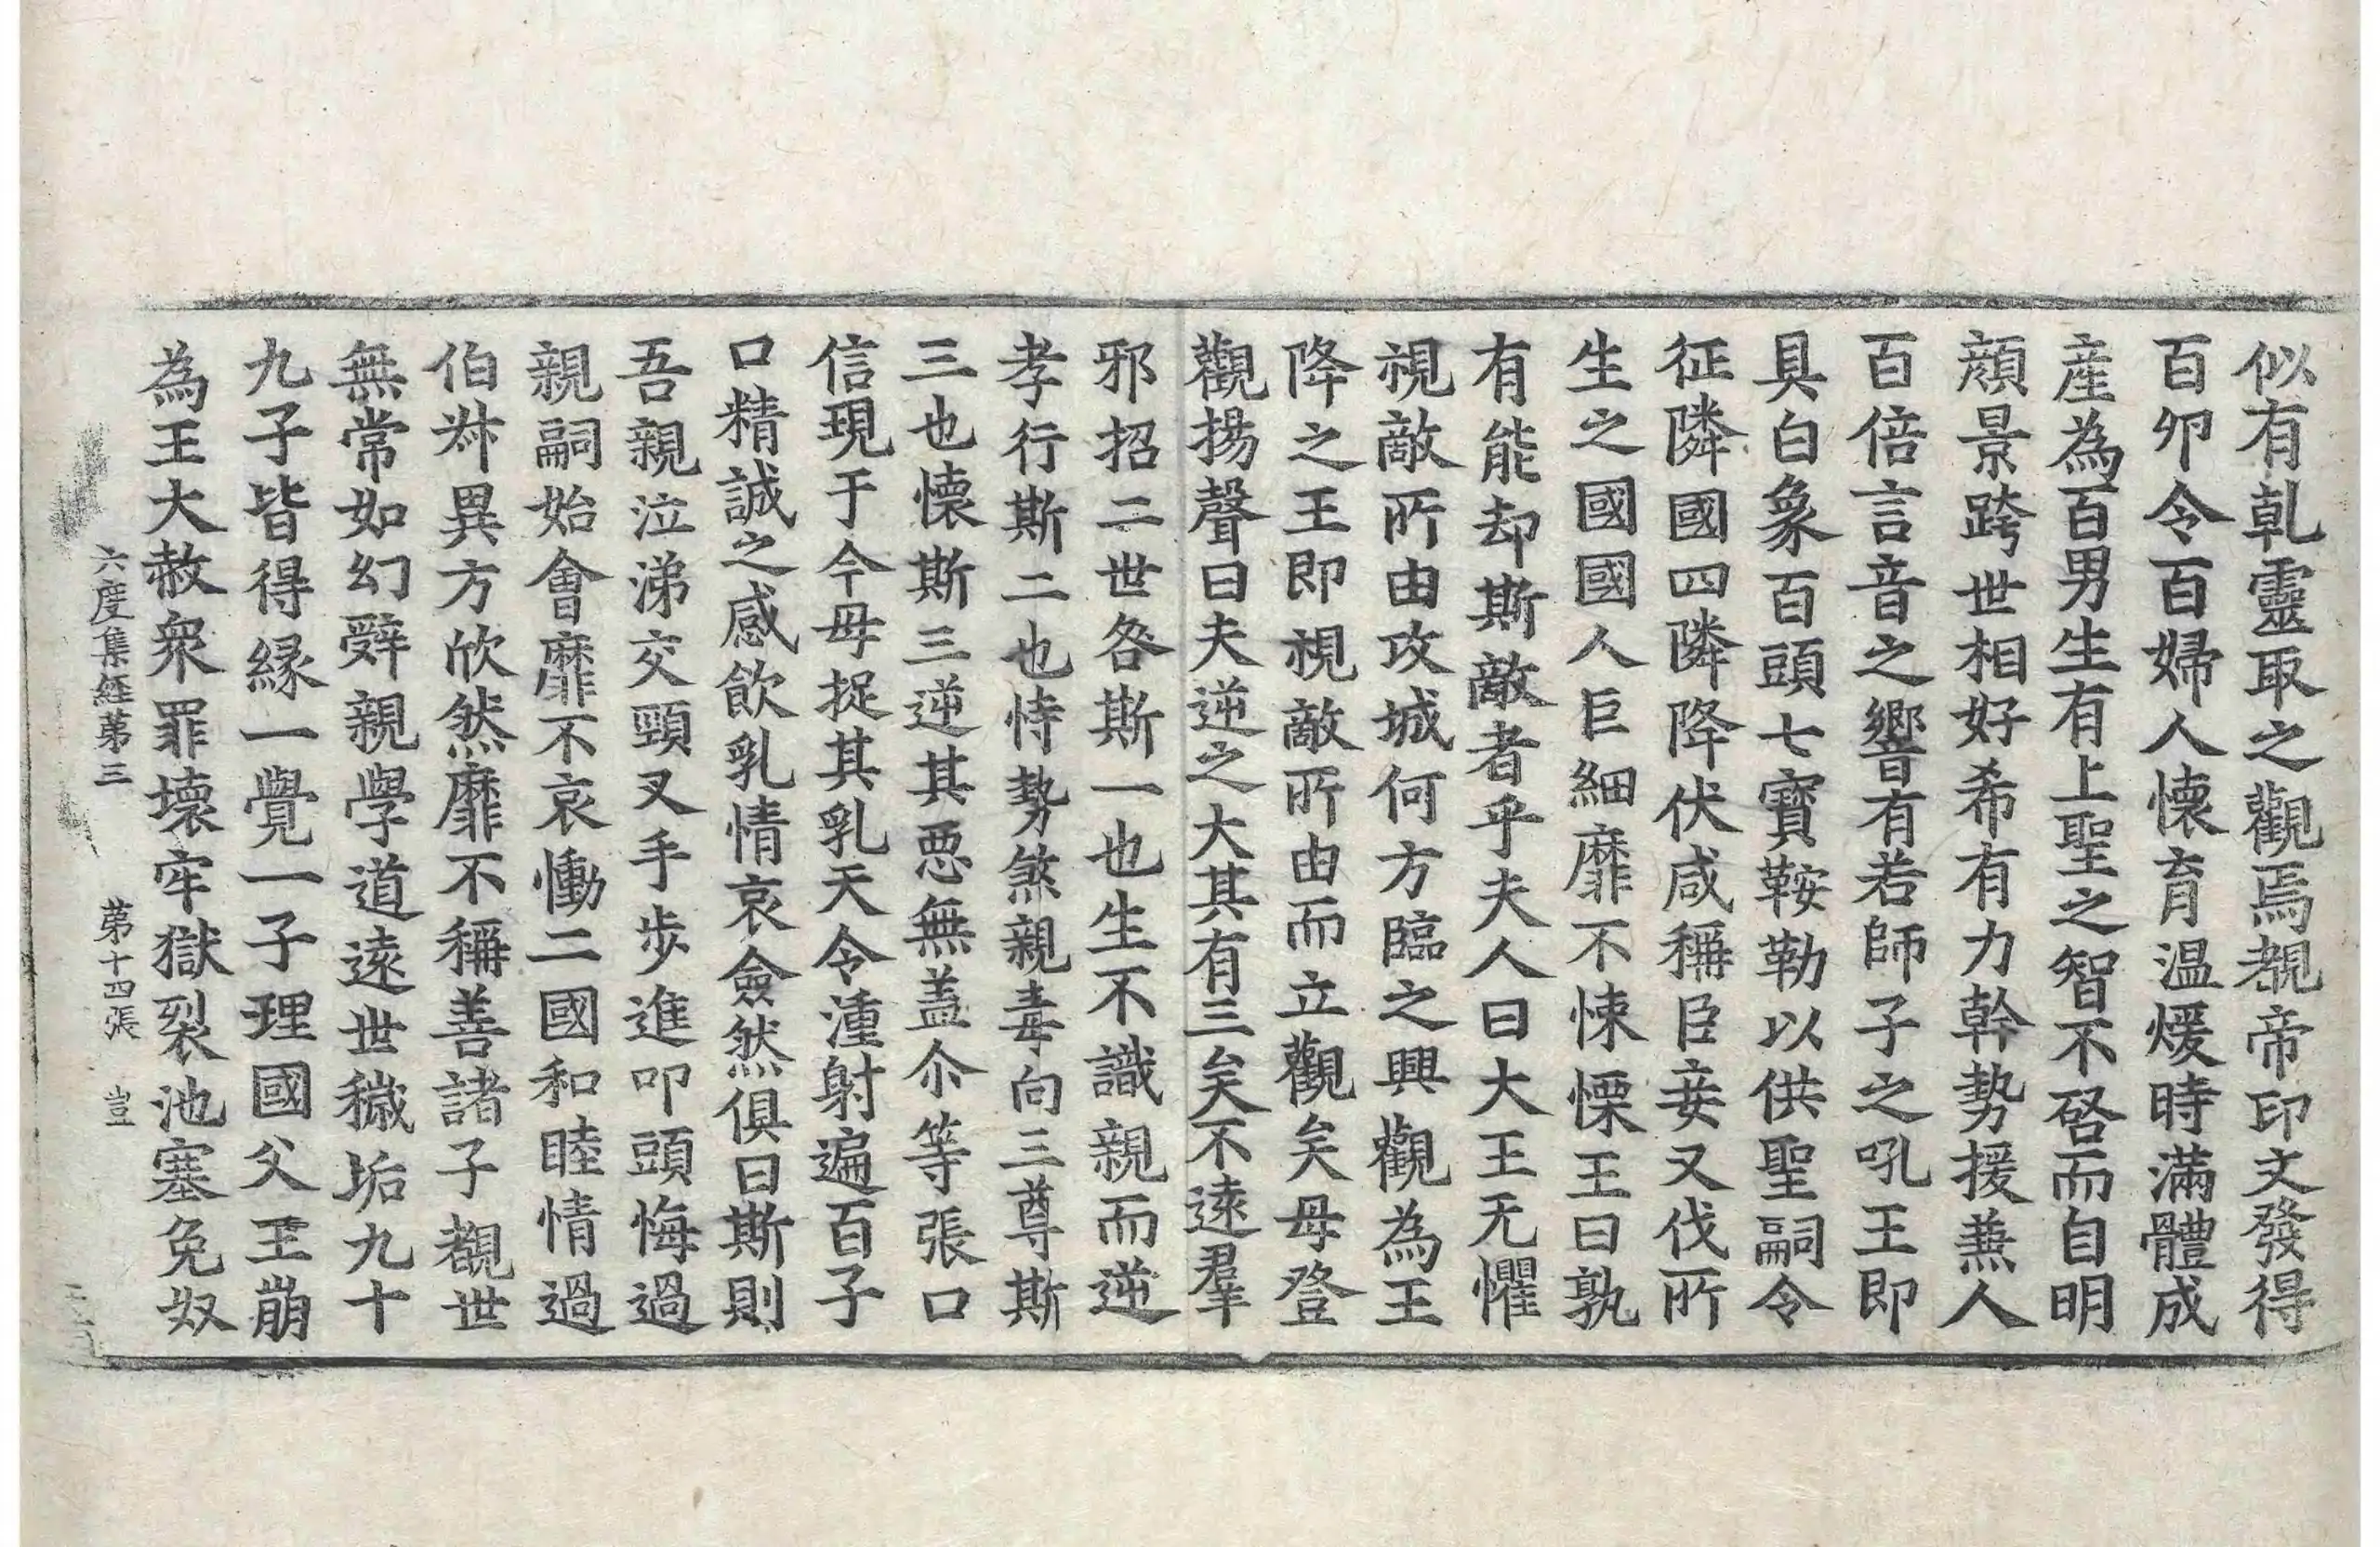 似有乹靈取之觀焉覩帝印文發得
百卵令百婦人懷育温煖時滿體成
産為百男生有上聖之智不啓而自明
顔景跨世相好希有力幹勢援兼人
百倍言音之響有若師子之吼王即
具白象百頭七寶鞍勒以供聖嗣令
征隣國四隣降伏咸稱臣妾又伐所
生之國國人巨細靡不悚慄王曰孰
有能却斯敵者乎夫人曰大王无懼
視敵所由攻城何方臨之興觀為王
降之王即視敵所由而立觀矣母登
觀揚聲曰夫逆之大其有三矣不遠羣
邪招二世咎斯一也生不識親而逆
孝行斯二也恃勢煞親毒向三尊斯
三也懷斯三逆其悪無盖尒等張口
信現于今母捉其乳天令湩射遍百子
口精誠之感飲乳情哀僉然俱曰斯則
吾親泣涕交頸叉手步進叩頭悔過
親嗣始會靡不哀慟二國和睦情過
伯牂異方欣然靡不稱善諸子覩世
無常如幻辭親學道遠世穢垢九十
九子皆得縁一覺一子理國父王崩
為王大赦衆罪壞牢獄裂池塞免奴
六度集經苐三　苐十四張　岦